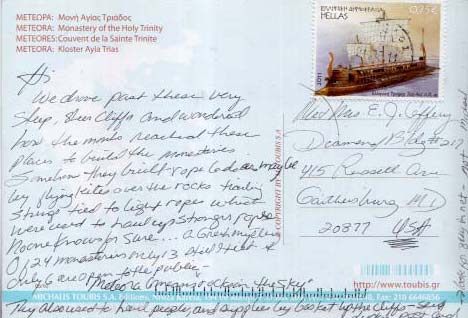 ΜΕΤΕΩΡΑ: Μονή Αγίας Τριάδος
METEORA: Monastery of the Holy Trinity
METEORES: Couvent de la Sainte Trinite
METEORA: Kloster Ayia Trias
ΕΛΛΗΝΙΚΗ ΔΗΜΟΚΡΑΤΙΑ
HELLAS
0,75€
2011
Hi
We drove past these very
steep, sheer cliffs and wondered
how the monks reached these
places to build the monasteries
Somehow they built rope ladders, maybe
by flying kites over the rocks trailing
strings tied to light ropes which
were used to haul up stronger ropes
No one knows for sure... a Greek mystery
Of 24 monasteries only 13 still exist &
only 6 are open to the public
"Meteora" "in the sky"
They also used to haul people and supplies by basket up the cliffs
© COPYRIGHT TOUBIS S.A.
Mr & Mrs E. J.
Bldg # 217
415 Russell Ave
Gaithersburg MD
20877 USA
http://www.toubis.gr
MICHALIS TOUBIS S.A. Editions, Nisiza Karela,
Fax: 210 6646856